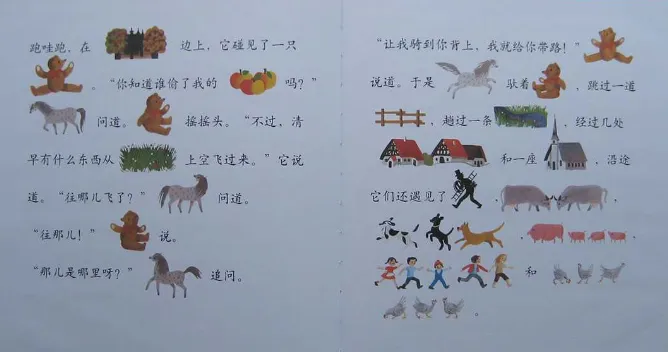 跑哇跑，在 边上，它碰见了一只
。“你知道谁偷了我的 吗？”
问道。 摇摇头。“不过，清
早有什么东西从 上空飞过来。”它说
道。“往哪儿飞了？” 问道。
“往那儿！” 说。
“那儿是哪里呀？” 追问。
“让我骑到你背上，我就给你带路！”
说道。于是 驮着 ，跳过一道
，趟过一条 ，经过几处
和一座 ，沿途
它们还遇见了 、 、
、
和
。